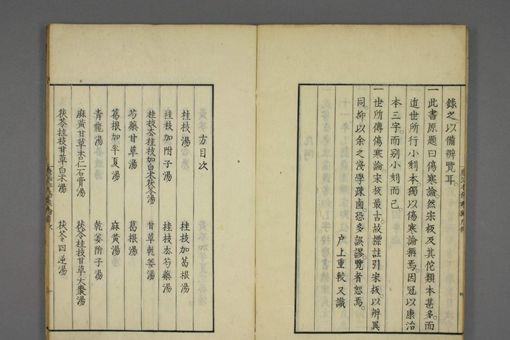 錄之以備辨覽耳
一此書原題曰傷寒論然宋板及其佗雅本甚多而
世所行小刻本獨以傷寒論稱焉因冠以康治
本三字而別小刻而已
一世所傳傷寒論宋板最古故標註引宋板以辨異
同抑以余之淺學疎鹵恐多誤謬覽者恕焉
戶上重較又識
方目次
桂枝湯
桂枝加葛根湯
桂枝加附子湯
桂枝去芍藥湯
桂枝去桂枝加白朮茯苓湯
甘草乾薑湯
芍藥甘草湯
葛根湯
葛根加半夏湯
麻黃湯
青龍湯
乾薑附子湯
麻黃甘草杏仁石膏湯
茯苓桂枝甘草大棗湯
茯苓桂枝甘草白朮湯
茯苓四逆湯